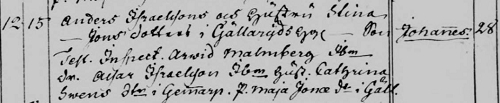 12. 15. Anders Israelsons och Hustru Stina
Jons Dotters i Gällaryds Son Johanes. 28
Test. Inspect. Arwid Malmberg Ibm
Dr. Israelson Ibm Hust. Cathrina
Swens Dr i P. Maja Jonæ Dr i Gäll.